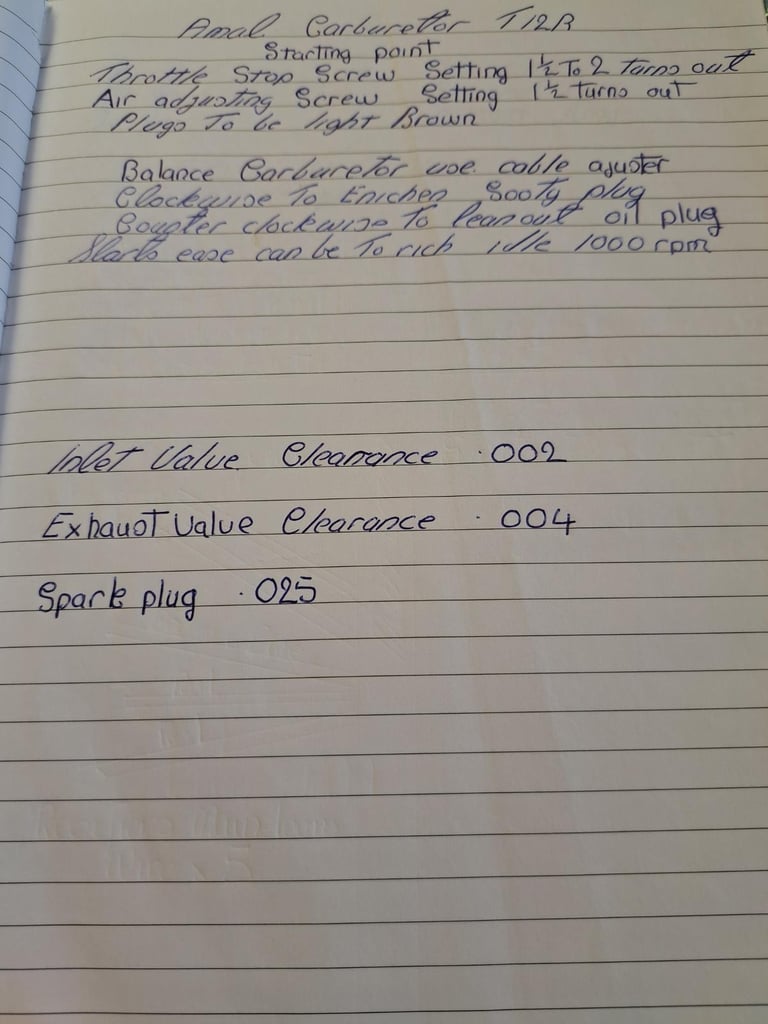 Amal. Carburettor T12R
Starting point
Throttle Stop Screw Setting 1½ To 2 Turns out
Air adjusting Screw Setting 1½ turns out
Plugs To be light Brown
Balance Carburetor use cable ajuster
Clockwise To Enichen Sooty plug
Counter clockwise To lean out oil plug
Starts ease can be To rich idle 1000 rpm
Inlet Valve Clearance .002
Exhaust Valve Clearance .004
Spark plug .025